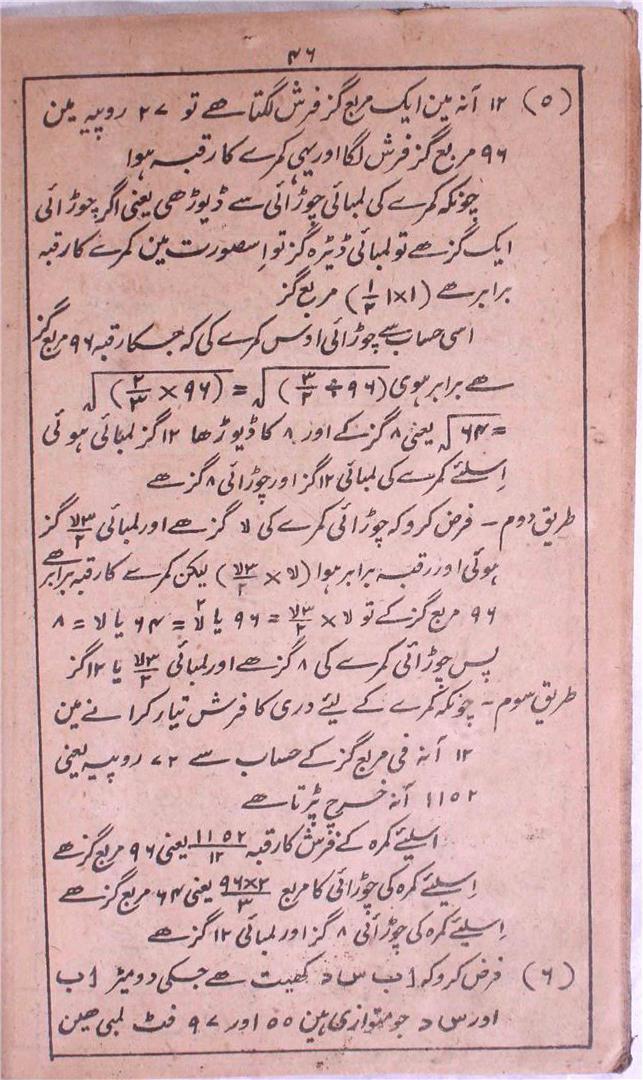 ۴۶
(۵) ۱۲ آنہ مین ایک مربع گز فرش لگتا ھے تو ۲۷ روپیہ مین
۹۶ مربع گز فرش لگا اور یہی کمرے کا رقبہ ہوا
چونکہ کمرے کی لمبائی چوڑائی سے ڈیوڑھی یعنی اگر چوڑائی
ایک گز ھے تو لمبائی ڈیڑہ گز تو اِ سصورت مین کمرے کا رقبہ
برابر ھے (۱×۱ ۱/۲) مربع گز
اسی حساب سے چوڑائی اوس کمرے کی کہ جسکا رقبہ ۹۶ مربع گز
ھے برابر ہوی √(۹۶ ÷ ۳/۲) = √(۹۶ × ۲/۳)
= √۶۴ یعنی ۸ گز کے اور ۸ کا ڈیوڑھا ۱۲ گز لمبائی ہوئی
اِسلئے کمرے کی لمبائی ۱۲ گز اور چوڑائی ۸ گز ھے
طریق دوم - فرض کرو کہ چوڑائی کمرے کی لا گز ھے اور لمبائی ۳لا/۲ گز
ہوئی اور رقبہ برابر ہوا (لا × ۳لا/۲) لیکن کمرے کا رقبہ برابر ھے
۹۶ مربع گز کے تو لا × ۳لا/۲ = ۹۶ یا لا۲ = ۶۴ یا لا = ۸
پس چوڑائی کمرے کی ۸ گز ھے اور لمبائی ۳لا/۲ یا ۱۲ گز
طریق سوم - چونکہ کمرے کے لیئے دری کا فرش تیار کرانے مین
۱۲ آنہ فی مربع گز کے حساب سے ۷۲ روپیہ یعنی
۱۱۵۲ آنہ خرچ پڑتا ھے
اسلیئے کمرہ کے فرش کا رقبہ ۱۱۵۲/۱۲ یعنی ۹۶ مربع گز ھے
اِسیلیئے کمرہ کی چوڑائی کا مربع ۹۶×۲/۳ یعنی ۶۴ مربع گز ھے
اِسلیئے کمرہ کی چوڑائی ۸ گز اور لمبائی ۱۲ گز ھے
(۶) فرض کرو کہ ا ب س د کھیت ھے جسکی دو میڑ ا ب
اور س د جو متوازی ہین ۵۵ اور ۹۷ فٹ لمبی ھین